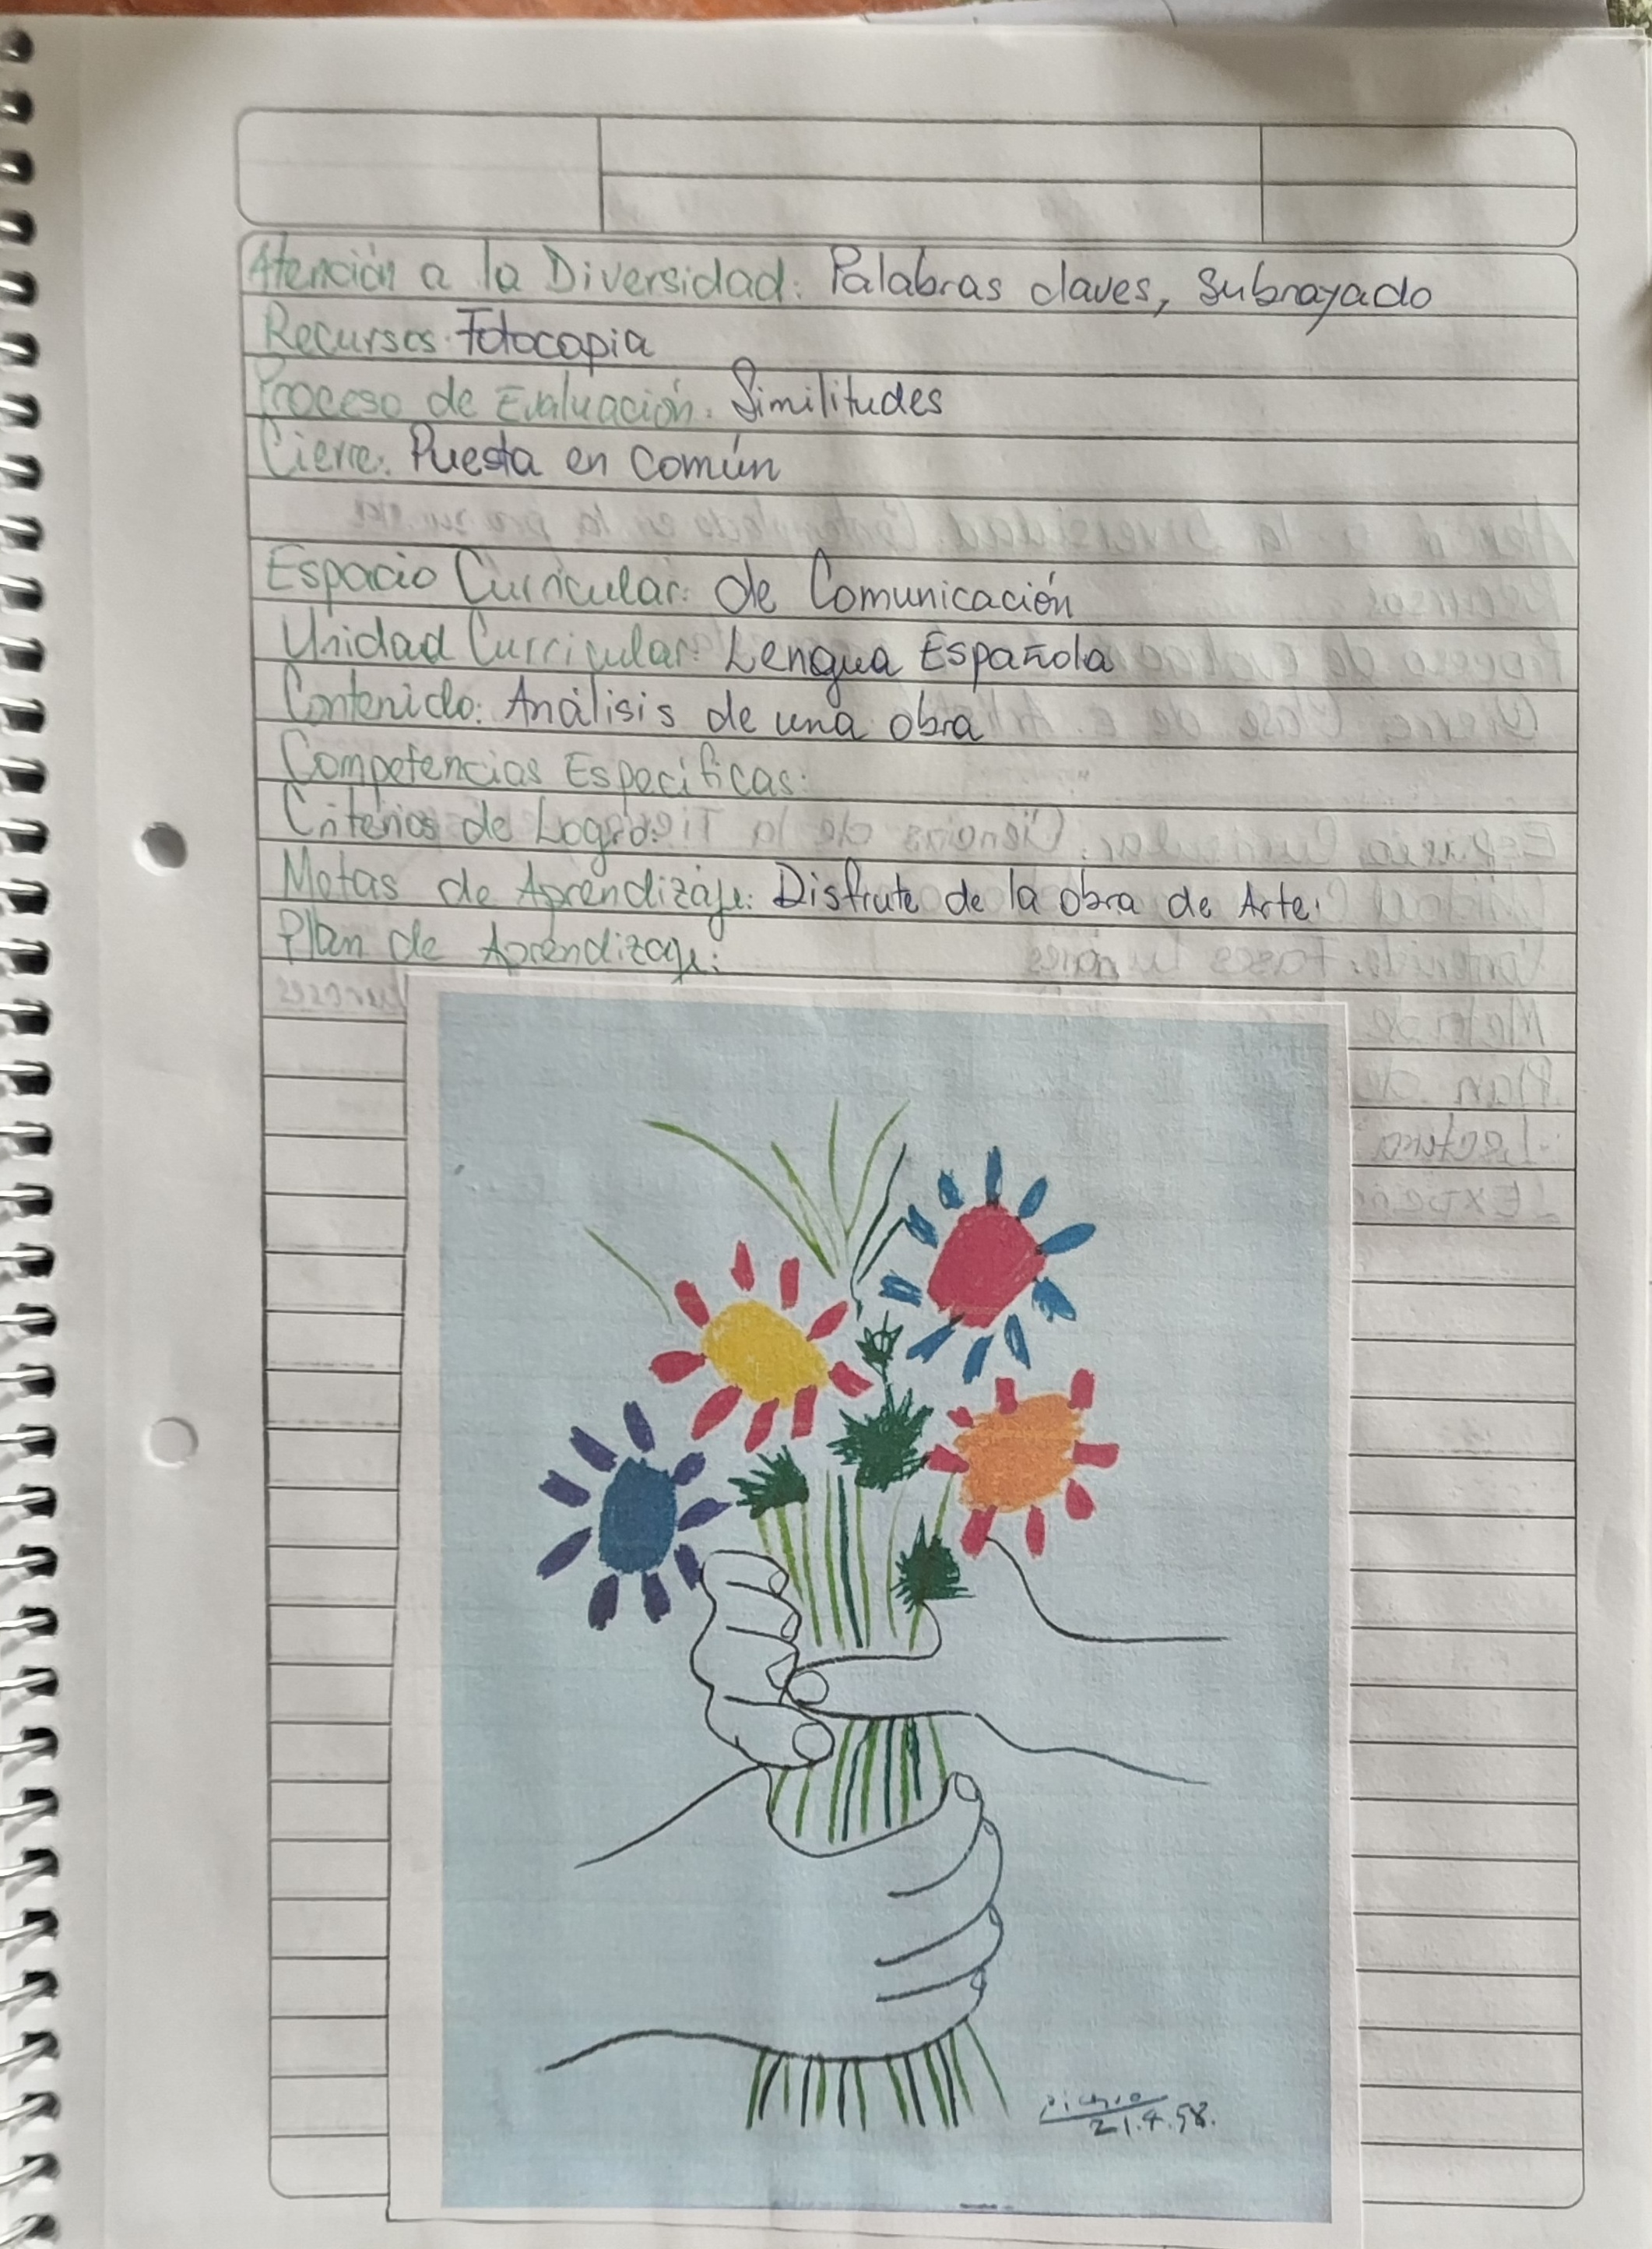 Atención a la Diversidad: Palabras claves, Subrayado
Recursos: Fotocopia
Proceso de Evaluación: Similitudes
Cierre: Puesta en común
Espacio Curricular: de Comunicación
Unidad Curricular: Lengua Española
Contenido: Análisis de una obra
Competencias Específicas:
Criterios de Logro:
Metas de Aprendizaje: Disfrute de la obra de Arte.
Plan de Aprendizaje:
Picasso
21.4.58.